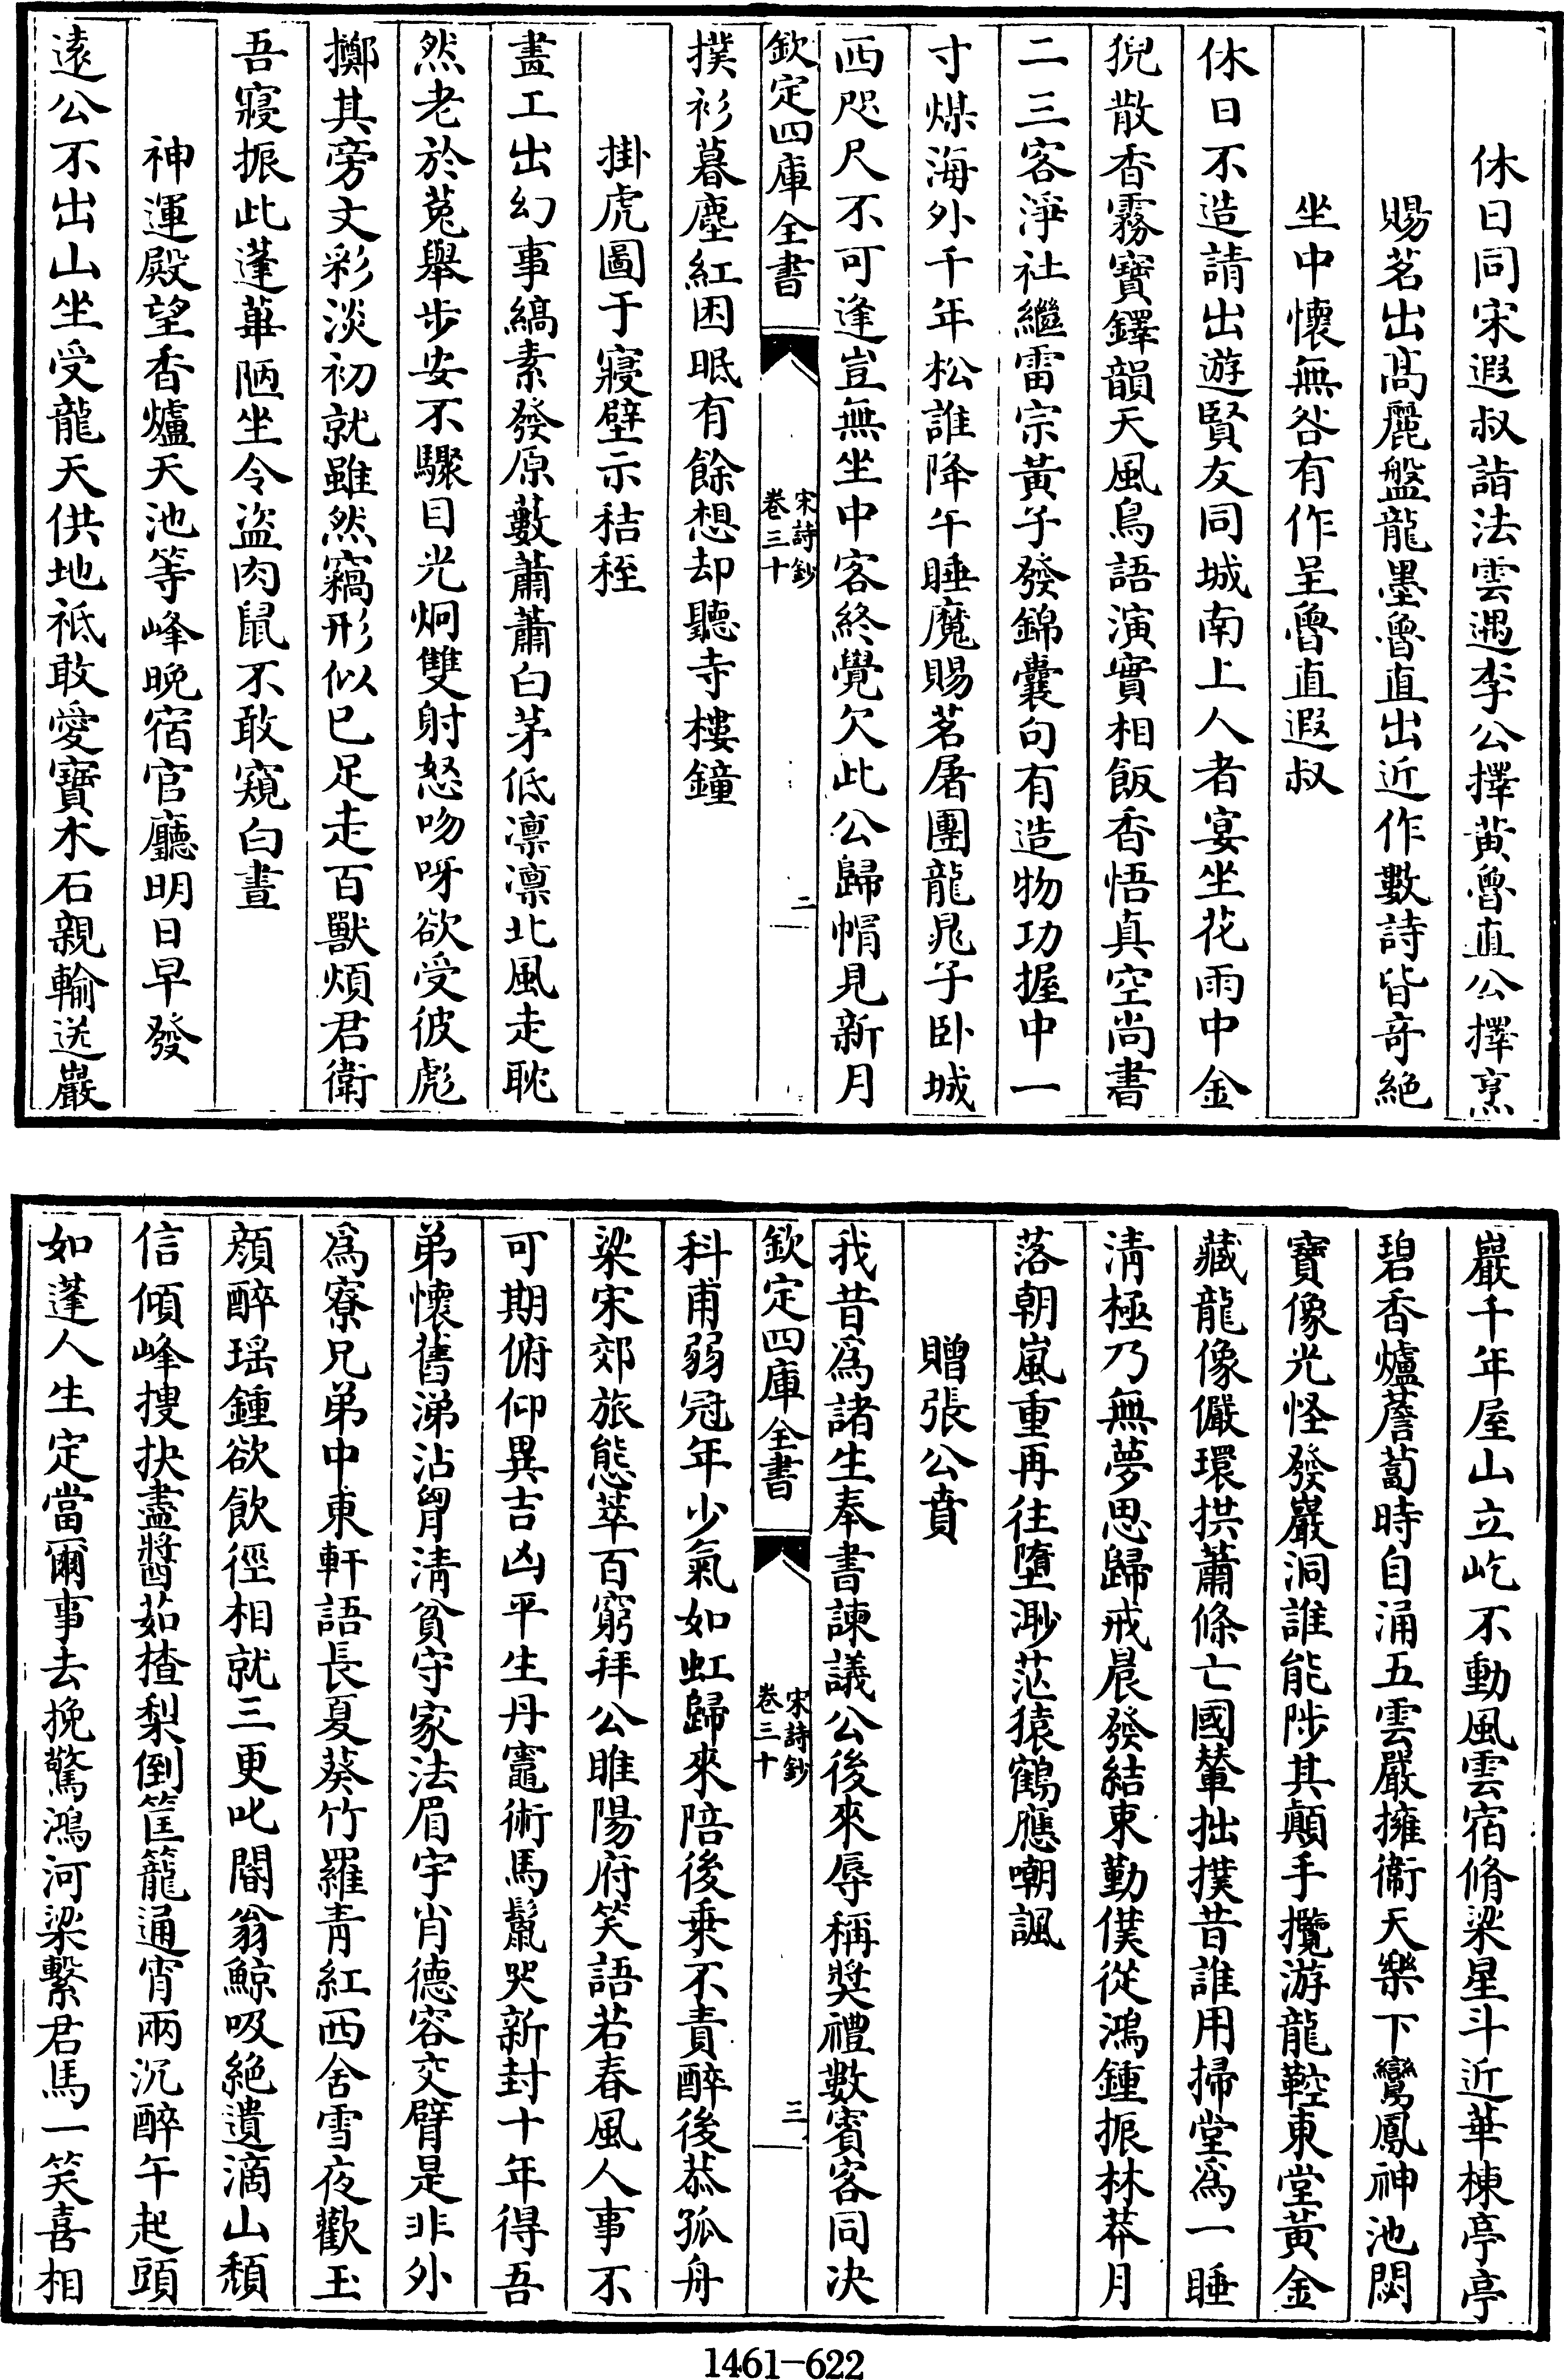 休日同宋遐叔詣法雲遇李公擇黄魯直公擇烹
賜茗出髙麗盤龍墨魯直出近作數詩皆竒絶
坐中懷無咎有作呈魯直遐叔
休日不造請出遊賢友同城南上人者宴坐花雨中金
猊散香霧寶鐸韻天風鳥語演實相飯香悟真空尚書
二三客淨社繼雷宗黄子發錦囊句有造物功握中一
寸煤海外千年松誰降午睡魔賜茗屠團龍晁子卧城
西咫尺不可逢豈無坐中客終覺欠此公歸㡌見新月
欽定四庫全書
宋詩鈔
卷三十
二
撲衫暮塵紅困眠有餘想却聽寺樓鐘
掛虎圖于寢壁示秸秷
畫工出幻事縞素發原藪蕭蕭白茅低凛凛北風走眈
然老於菟舉步安不驟目光炯雙射怒吻呀欲受彼彪
擲其旁文彩淡初就雖然竊形似已足走百獸煩君衛
吾寢振此蓬蓽陋坐令盗肉鼠不敢窺白晝
神運殿望香爐天池等峰晚宿官廳明日早發
逺公不出山坐受龍天供地祇敢愛寳木石親輸送巖
巖千年屋山立屹不動風雲宿脩梁星斗近華棟亭亭
碧香爐薝蔔時自涌五雲嚴擁衞天樂下鸞鳳神池閟
寶像光怪發巖洞誰能陟其巔手攬游龍鞚東堂黄金
藏龍像儼環拱蕭條亡國輦拙撲昔誰用掃堂爲一睡
清極乃無夢思歸戒晨發結束勤僕從鴻鍾振林莽月
落朝嵐重再往墮渺茫猿鶴應嘲諷
贈張公賁
我昔爲諸生奉書諫議公後來辱稱奬禮數賓客同決
欽定四庫全書
宋詩鈔
卷三十
三
科甫弱冠年少氣如虹歸來陪後乗不責醉後恭孤舟
梁宋郊旅態萃百窮拜公睢陽府笑語若春風人事不
可期俯仰異吉凶平生丹竈術馬鬛哭新封十年得吾
弟懷舊涕沾胷清貧守家法眉宇肖德容交臂是非外
爲寮兄弟中東軒語長夏葵竹羅青紅西舍雪夜歡玉
顔醉瑶鍾欲飲徑相就三更叱閽翁鯨吸絶遺滴山頽
信傾峰搜抉盡醬茹楂梨倒筐籠通宵兩沉醉午起頭
如蓬人生定當爾事去挽驚鴻河梁繫君馬一笑喜相
1461-622